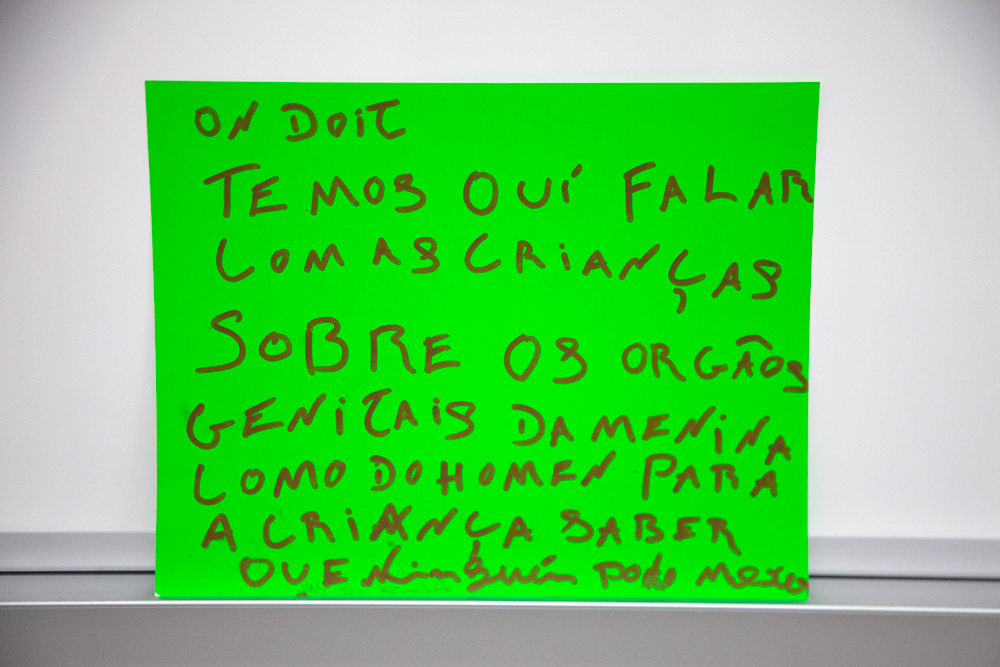 ON DOIT
TEMOS QUÍ FALAR
COM AS CRIANÇAS
SOBRE OS ORGÃOS
GENITAIS DA MENINA
COMO DO HOMEN PARA
A CRIANÇA SABER
QUE ninguém pode mexer